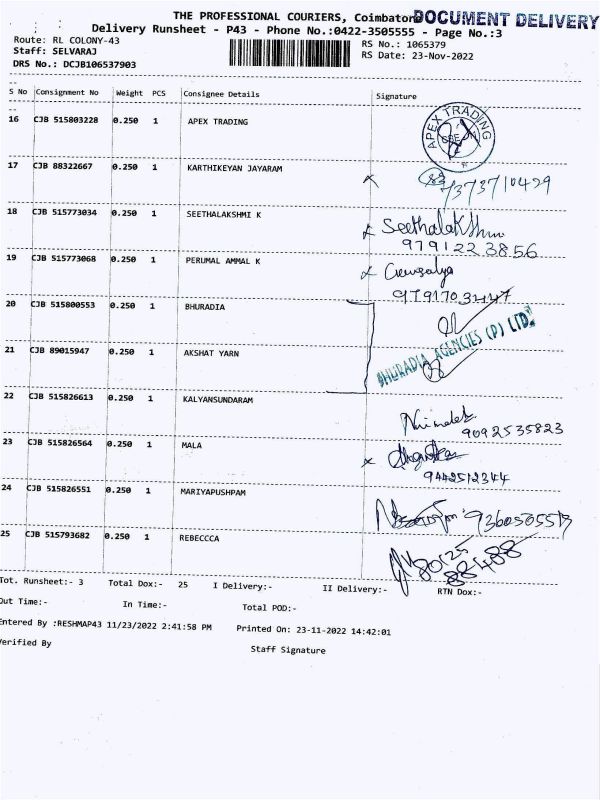 THE PROFESSIONAL COURIERS, Coimbatore
DOCUMENT DELIVERY
Delivery Runsheet - P43 - Phone No.:0422-3505555 - Page No.:3
Route: RL COLONY-43
RS No.: 1065379
Staff: SELVARAJ
RS Date: 23-Nov-2022
DRS No.: DCJB106537903
S No Consignment No Weight PCS Consignee Details Signature
16 CJB 515803228 0.250 1 APEX TRADING
APEX TRADING
17 CJB 88322667 0.250 1 KARTHIKEYAN JAYARAM
7373710429
18 CJB 515773034 0.250 1 SEETHALAKSHMI K
Seethalakshmi
9791223856
19 CJB 515773068 0.250 1 PERUMAL AMMAL K
20 CJB 515800553 0.250 1 BHURADIA
BHURADIA AGENCIES (P) LTD.
21 CJB 89015947 0.250 1 AKSHAT YARN
22 CJB 515826613 0.250 1 KALYANSUNDARAM
9092535823
23 CJB 515826564 0.250 1 MALA
9442512344
24 CJB 515826551 0.250 1 MARIYAPUSHPAM
25 CJB 515793682 0.250 1 REBECCCA
Tot. Runsheet:- 3 Total Dox:- 25 I Delivery:- II Delivery:- RTN Dox:-
Out Time:- In Time:- Total POD:-
Entered By :RESHMAP43 11/23/2022 2:41:58 PM Printed On: 23-11-2022 14:42:01
Verified By Staff Signature